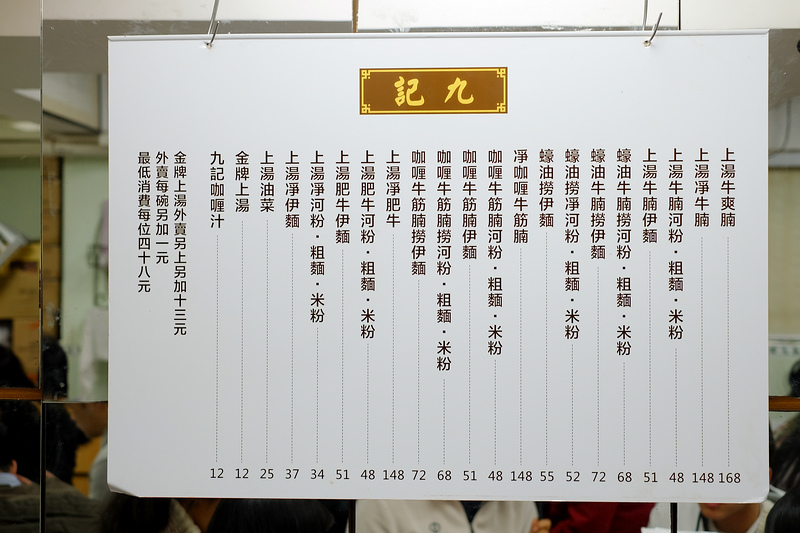 九記
上湯牛爽腩 168
上湯凈牛腩 148
上湯牛腩河粉．粗麵．米粉 48
上湯牛腩伊麵 51
蠔油牛腩撈河粉．粗麵．米粉 68
蠔油牛腩撈伊麵 72
蠔油撈凈河粉．粗麵．米粉 52
蠔油撈伊麵 55
凈咖喱牛筋腩 148
咖喱牛筋腩河粉．粗麵．米粉 48
咖喱牛筋腩伊麵 51
咖喱牛筋腩撈河粉．粗麵．米粉 68
咖喱牛筋腩撈伊麵 72
上湯凈肥牛 148
上湯肥牛河粉．粗麵．米粉 48
上湯肥牛伊麵 51
上湯凈河粉．粗麵．米粉 34
上湯凈伊麵 37
上湯油菜 25
金牌上湯 12
九記咖喱汁 12
金牌上湯外賣另上另加十三元
外賣每碗另加一元
最低消費每位四十八元